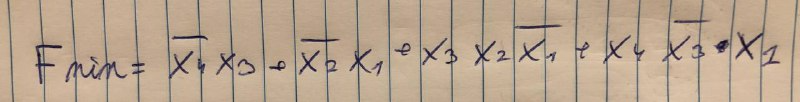 F min = x̅₄ x₃ + x̅₂ x₁ + x₃ x₂ x̅₁ + x₄ x̅₃ • x₁